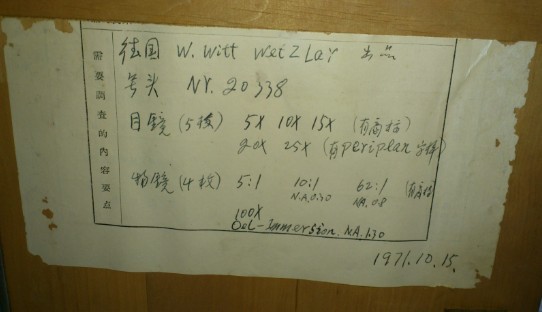 德国 W. Witt Wetzlar 出品
号头 NY. 20338
目镜(5枚) 5X 10X 15X (有高拮)
20X 25X (有periplan字样)
物镜(4枚) 5:1 10:1 62:1
N.A.0:30 NA.0.8
100X
Oel-Immersion. NA.1.30
需要调查的内容要点
1971.10.15.